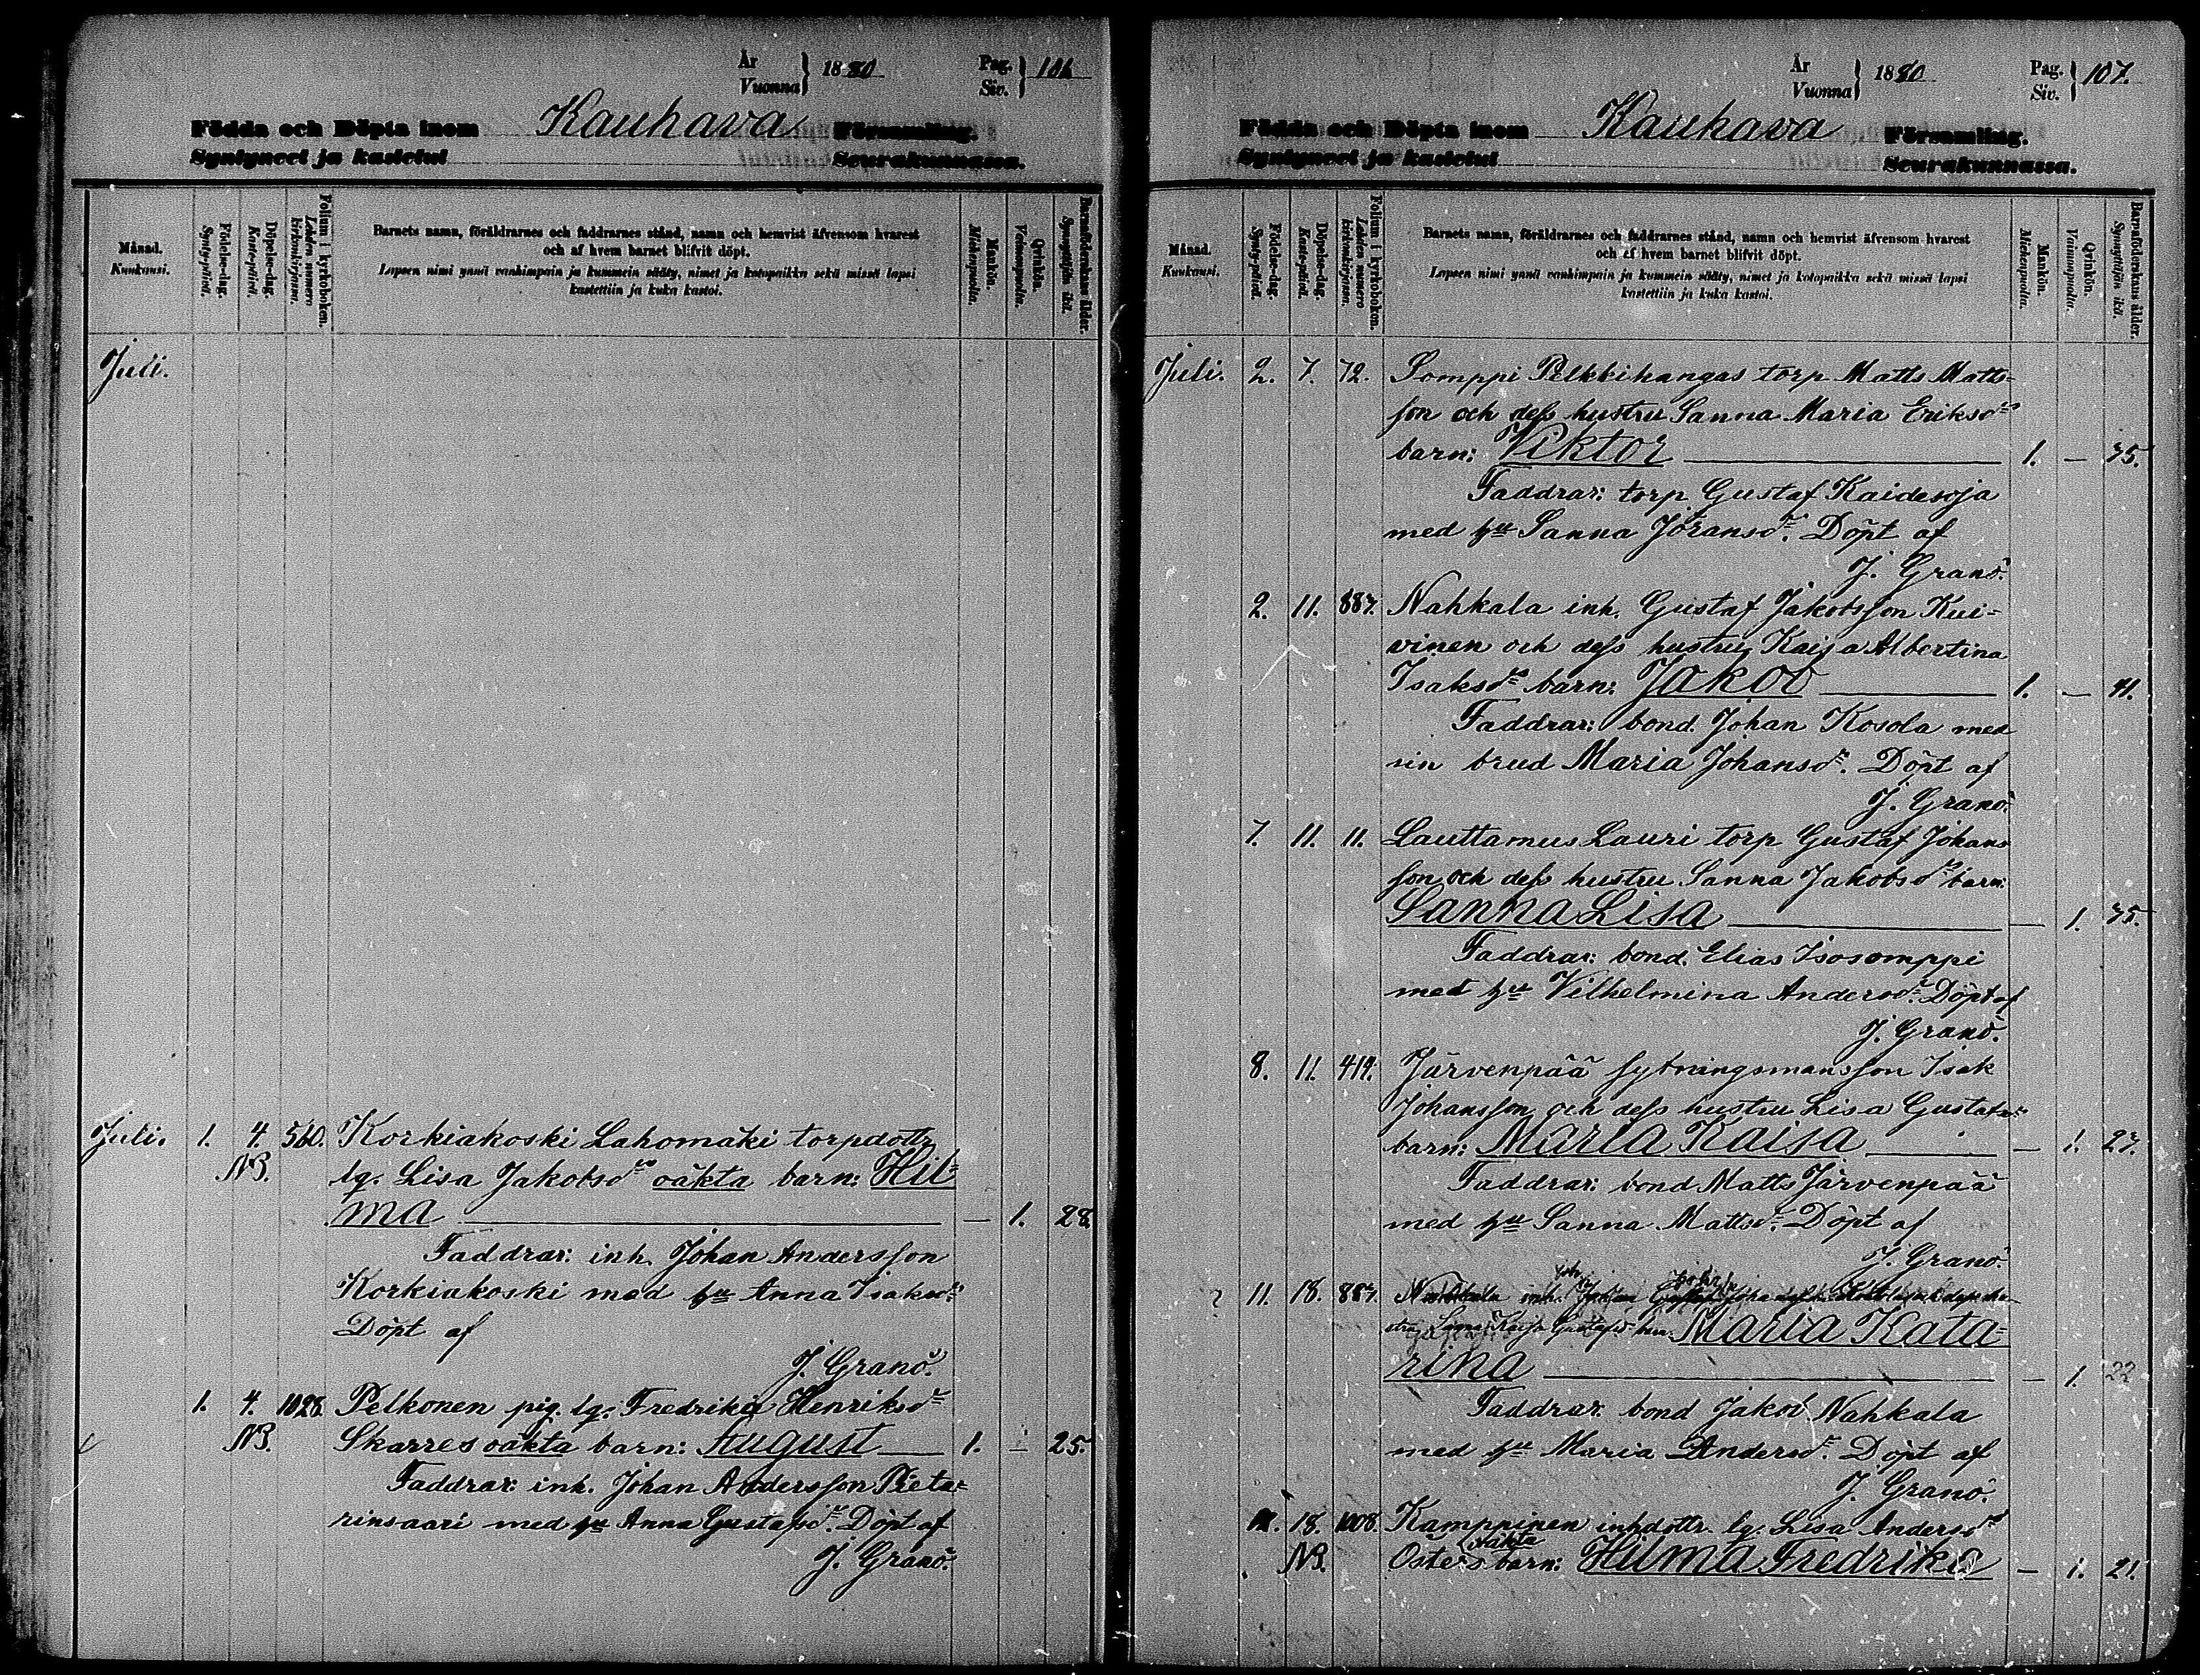 År
Vuonna } 1880
Pag.
Siv. } 106
Födda och Döpta inom Kauhava Församling.
Syntyneet ja kastetut Seurakunnassa.
Månad.
Kuukausi.
Födelse-dag.
Synty-päivä.
Döpelse-dag.
Kaste-päivä.
Folium i kyrkoboken.
Lehden numero kirkonkirjassa.
Barnets namn, föräldrarnes och faddrarnes stånd, namn och hemvist äfvensom hvarest
och af hvem barnet blifvit döpt.
Lapsen nimi ynnä vanhimpain ja kummein sääty, nimet ja kotopaikka sekä missä lapsi
kastettiin ja kuka kastoi.
Mankön.
Miehenpuolia.
Qvinkön.
Vaimonpuolia.
Barnaföderskans ålder.
Synnyttäjän ikä.
Juli.
Juli. 1. 4. 560. Korkiakoski Lahomäki torpdottr
NB. lg. Lisa Jakobsdr oäkta barn: Hil-
ma — 1. 28.
Faddrar: inh. Johan Andersson
Korkiakoski med hu Anna Isaksdr
Döpt af
J. Granö.
1. 4. 1028. Pelkonen pig. lg. Fredrika Henriksdr
NB. Skarres oäkta barn: August 1. — 25.
Faddrar: inh. Johan Andersson Pieta-
rinsaari med hu Anna Gustafsdr. Döpt af
J. Granö.
År
Vuonna } 1880
Pag.
Siv. } 107.
Födda och Döpta inom Kauhava Församling.
Syntyneet ja kastetut Seurakunnassa.
Månad.
Kuukausi.
Födelse-dag.
Synty-päivä.
Döpelse-dag.
Kaste-päivä.
Folium i kyrkoboken.
Lehden numero kirkonkirjassa.
Barnets namn, föräldrarnes och faddrarnes stånd, namn och hemvist äfvensom hvarest
och af hvem barnet blifvit döpt.
Lapsen nimi ynnä vanhimpain ja kummein sääty, nimet ja kotopaikka sekä missä lapsi
kastettiin ja kuka kastoi.
Mankön.
Miehenpuolia.
Qvinkön.
Vaimonpuolia.
Barnaföderskans ålder.
Synnyttäjän ikä.
Juli. 2. 7. 72. Somppi Pelkkihangas torp Matts Matts-
son och dess hustru Sanna Maria Eriksdr
barn: Viktor 1. — 35.
Faddrar: torp Gustaf Kaidesoja
med hu Sanna Jöransdr. Döpt af
J. Granö.
2. 11. 887. Nahkala inh. Gustaf Jakobsson Kui-
vinen och dess hustru Kaisa Albertina
Isaksdr barn: Jakob 1. — 41.
Faddrar: bond. Johan Kosola med
sin brud Maria Johansdr. Döpt af
J. Granö.
7. 11. 11. Lauttamus Lauri torp Gustaf Johans
son och dess hustru Sanna Jakobsdr barn:
Sanna Lisa — 1. 35.
Faddrar: bond. Elias Isosomppi
med hu Vilhelmina Andersdr. Döpt af
J. Granö.
8. 11. 419. Järvenpää sytningsmansson Isak
Johansson och dess hustru Lisa Gustafsdr
barn: Maria Kaisa — 1. 27.
Faddrar: bond Matts Järvenpää
med hu Sanna Mattsdr. Döpt af
J. Granö.
11. 18. 887. Nahkala inh.
Sanna Kaisa Gustafsdr Maria Kata-
rina — 1. 22
Faddrar: bond Jakob Nahkala
med hu Maria Andersdr. Döpt af
J. Granö.
18. 1008. Kamppinen inhdottr. lg. Lisa Andersdr
NB. Osters oäkta barn: Hilma Fredrika — 1. 21.